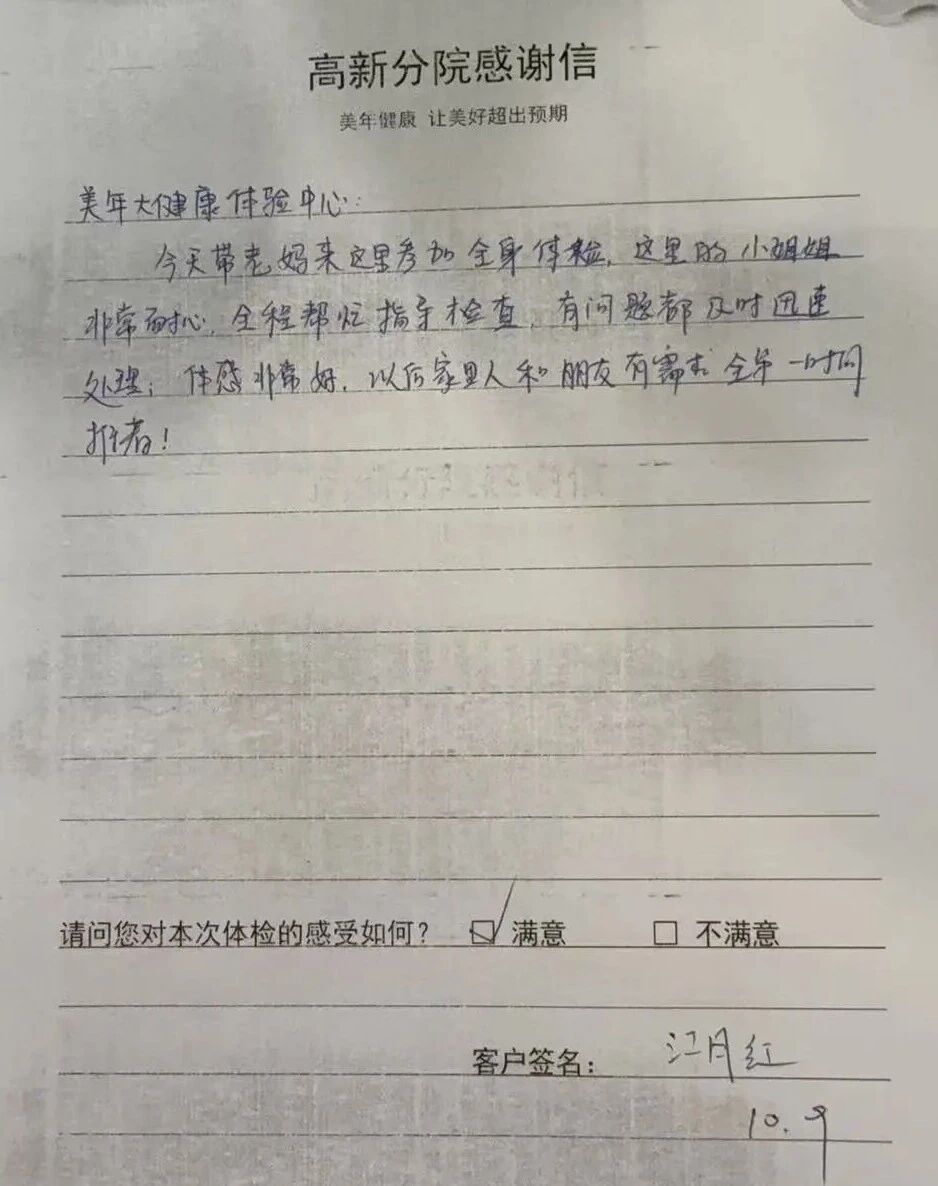 高新分院感谢信
美年健康 让美好超出预期
美年大健康体验中心:
今天带老妈来这里参加全身体检,这里的小姐姐
非常耐心,全程帮忙指导检查,有问题都及时迅速
处理;体感非常好,以后家里人和朋友有需求会第一时间
推荐!
请问您对本次体检的感受如何? ☑ 满意 □ 不满意
客户签名: 江月红
10.9